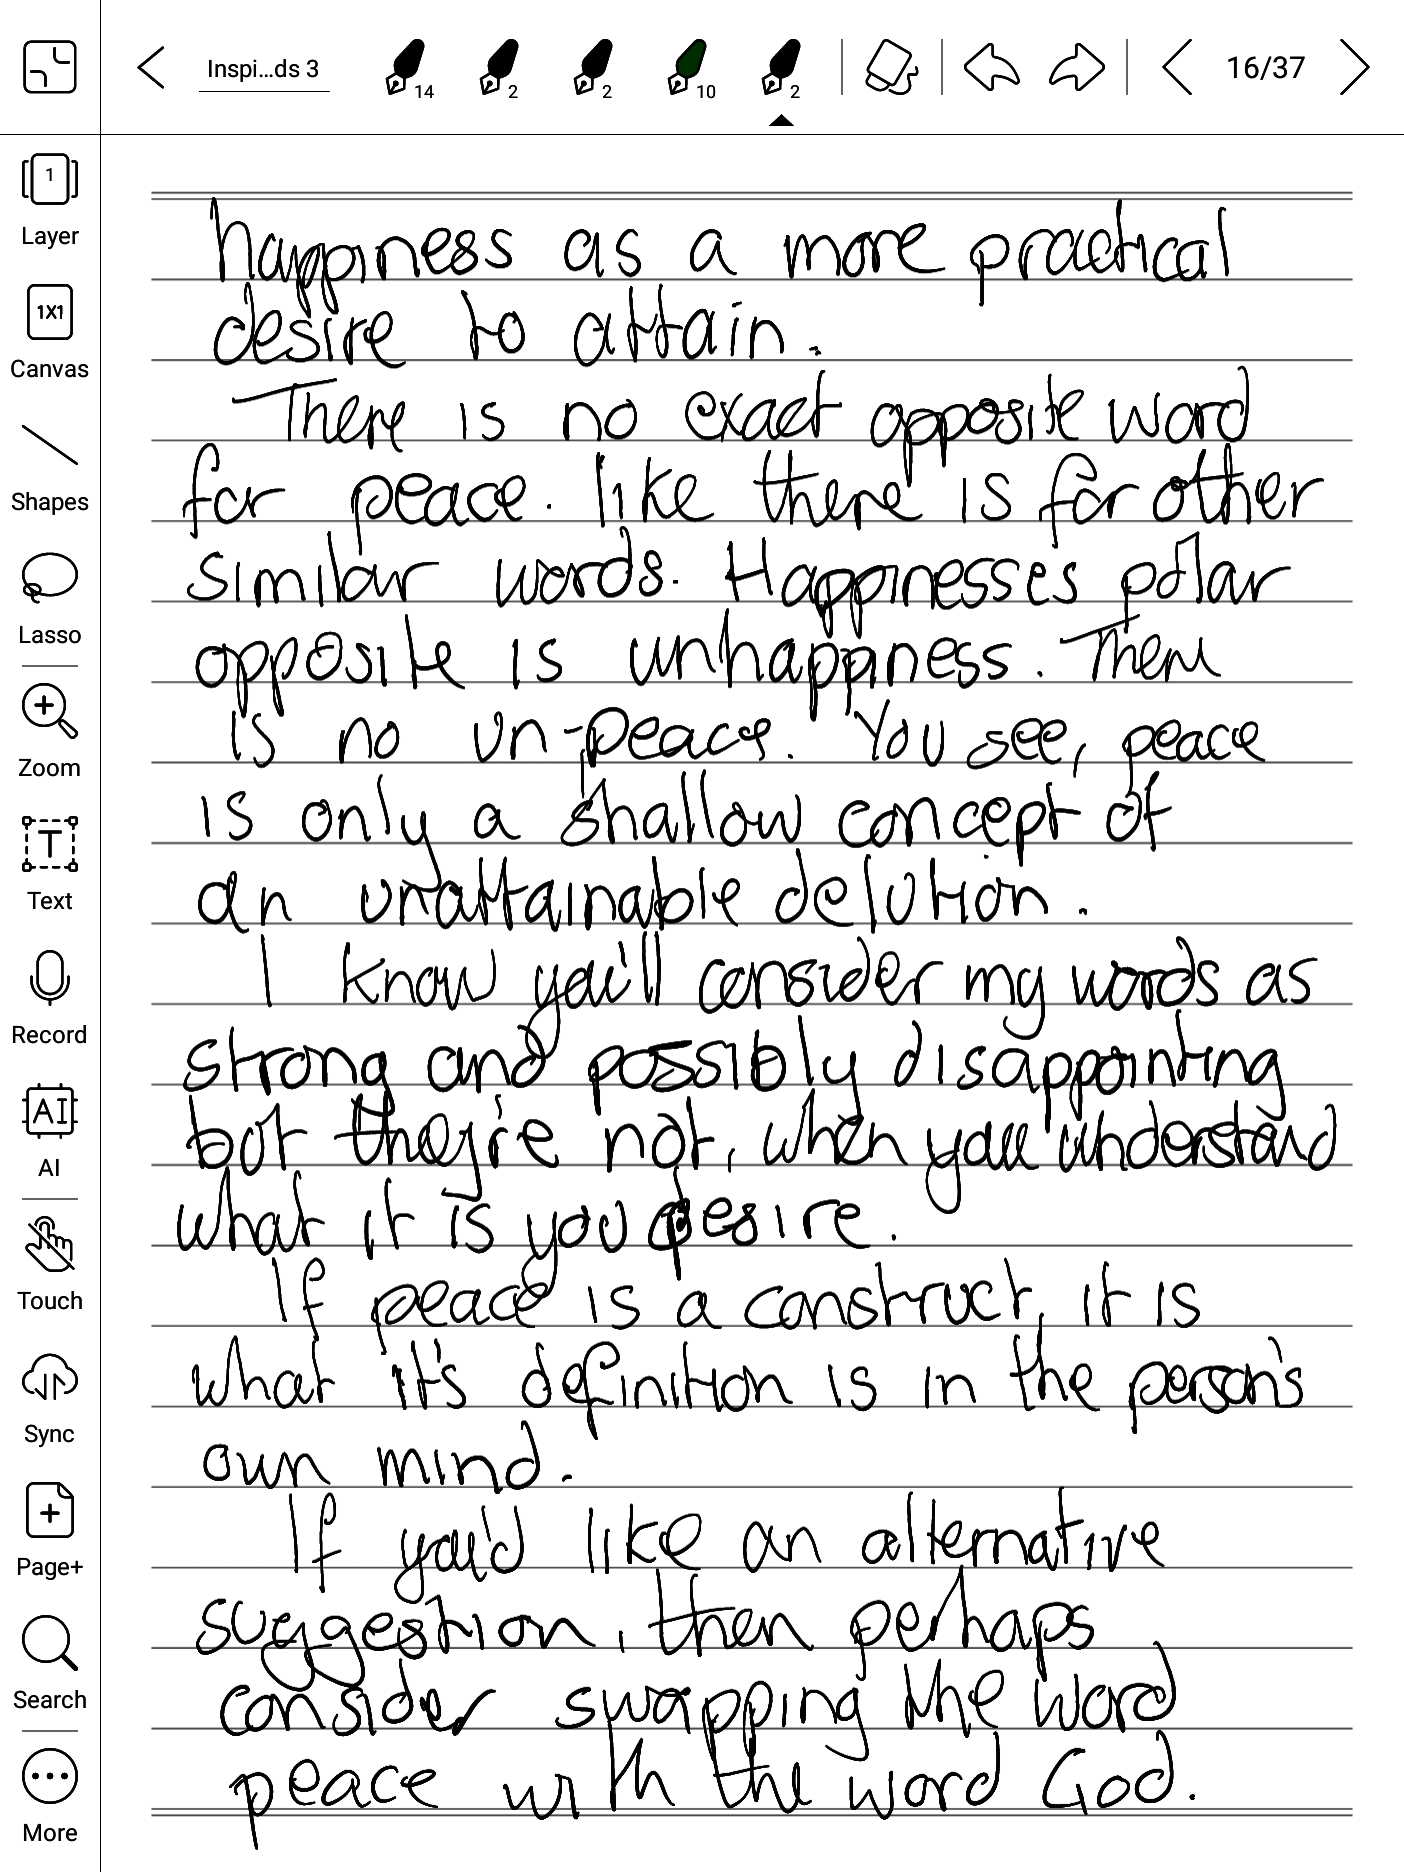 Inspi...ds 3
14
2
2
10
2
16/37
1
Layer
1X1
Canvas
Shapes
Lasso
Zoom
T
Text
Record
AI
AI
Touch
Sync
Page+
Search
More
happiness as a more practical
desire to attain.
There is no exact opposite word
for peace. like there is for other
similar words. Happinesses polar
opposite is unhappiness. There
is no un-peace. You see, peace
is only a shallow concept of
an unattainable delution.
I know you'll consider my words as
strong and possibly disappointing
but they're not, when you understand
what it is you desire.
If peace is a construct, it is
what it's definition is in the person's
own mind.
If you'd like an alternative
suggestion, then perhaps
consider swapping the word
peace with the word God.